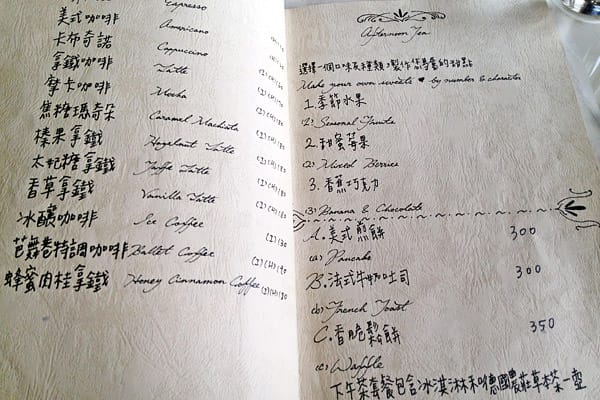 Espresso
美式咖啡 Americano
卡布奇諾 Cappuccino
拿鐵咖啡 Latte
摩卡咖啡 Mocha
焦糖瑪奇朵 Caramel Machiato
榛果拿鐵 Hazelnut Latte
太妃糖拿鐵 Toffe Latte
香草拿鐵 Vanilla Latte
冰釀咖啡 Ice Coffee (I)130
芭蕾卷特調咖啡 Ballet Coffee
蜂蜜肉桂拿鐵 Honey Cinnamon Coffee (I)(H)180
Afternoon Tea
選擇一個口味及種類,製作您專屬的甜點
Make your own sweets ♥ by number & character
1.季節水果
(1) Seasonal Fruits
2.甜蜜莓果
(2) Mixed Berries
3.香蕉巧克力
(3) Banana & Chocolate
A.美式煎餅 300
(a) Pancake
B.法式牛奶吐司 300
(b) French Toast
C.香脆鬆餅 350
(c) Waffle
下午茶套餐包含冰淇淋和德國農莊草本茶一壺